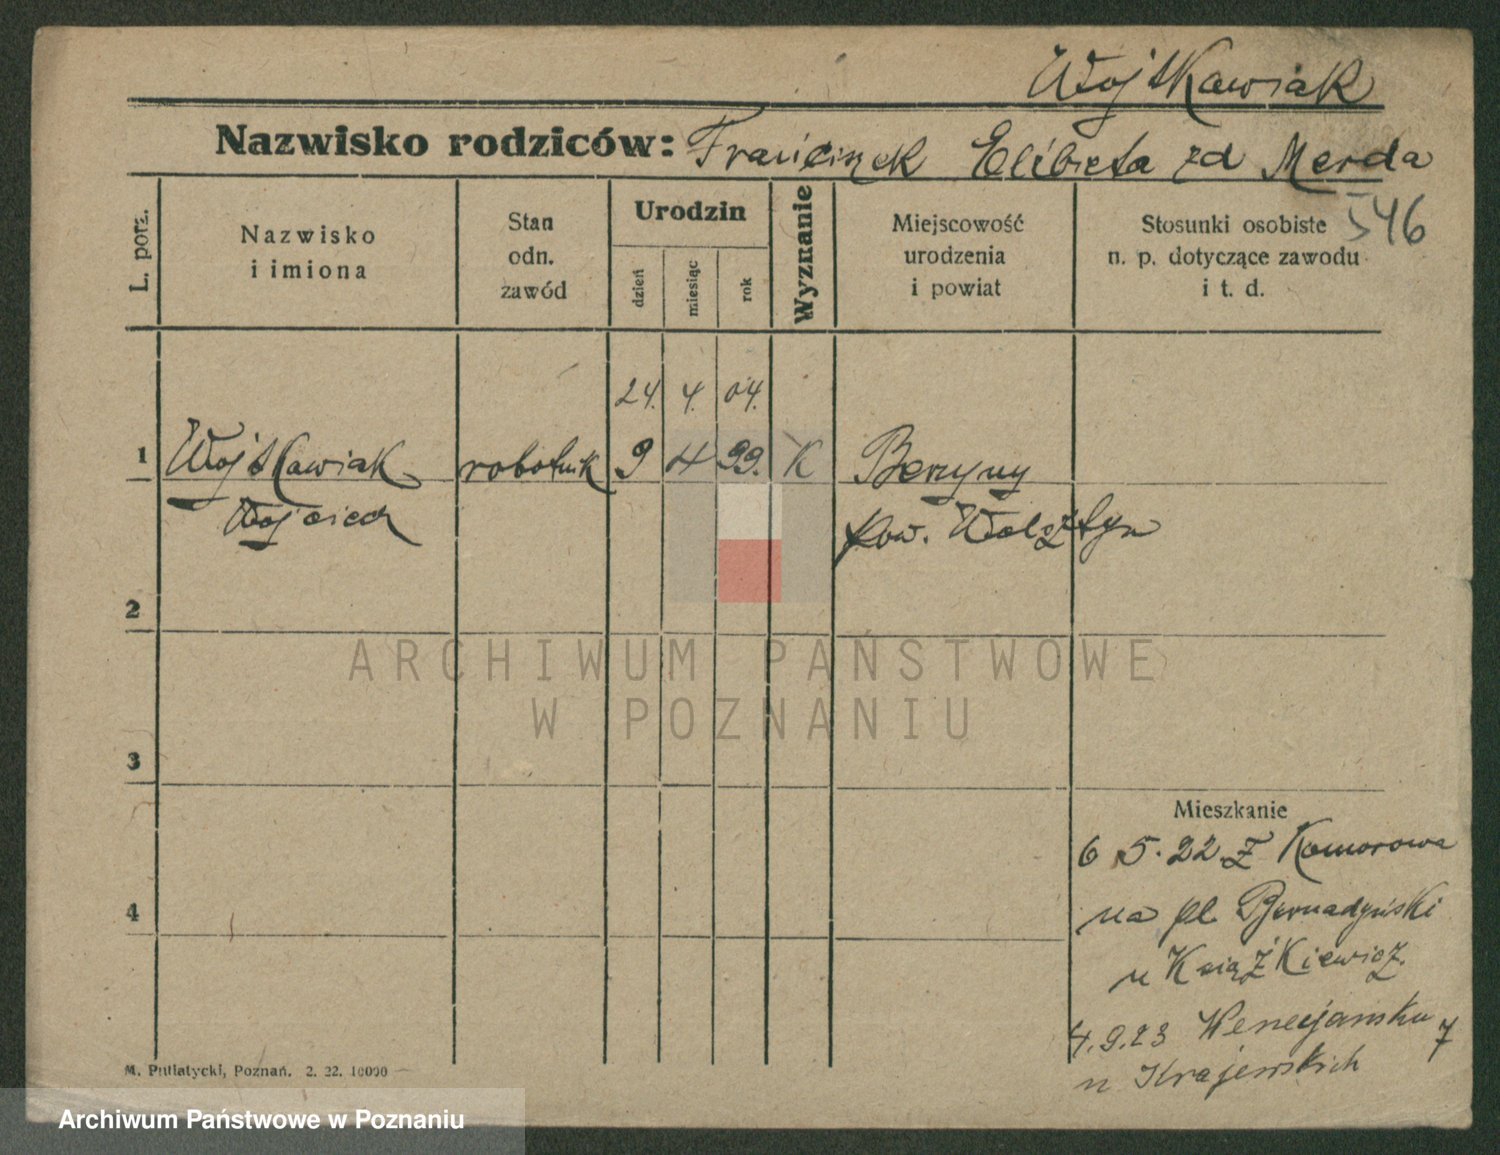 Wojtkowiak
Nazwisko rodziców: Franciszek Elżbieta zd Merda
546
L. porz.
Nazwisko i imiona
Stan odn. zawód
Urodzin
dzień miesiąc rok
Wyznanie
Miejscowość urodzenia i powiat
Stosunki osobiste n. p. dotyczące zawodu i t. d.
24. 4. 04.
1 Wojtkowiak robotnik 9 4 99. K Berzyny
Wojciech pow. Wolsztyn
2
3
4
ARCHIWUM PAŃSTWOWE
W POZNANIU
Mieszkanie
6 5. 22. Z Komorowa
na pl. Bernadyński
u Książkiewicz.
4.9.23 Wenecjańska 7
u Krajewskich
M. Putiatycki, Poznań. 2. 22. 10000
Archiwum Państwowe w Poznaniu